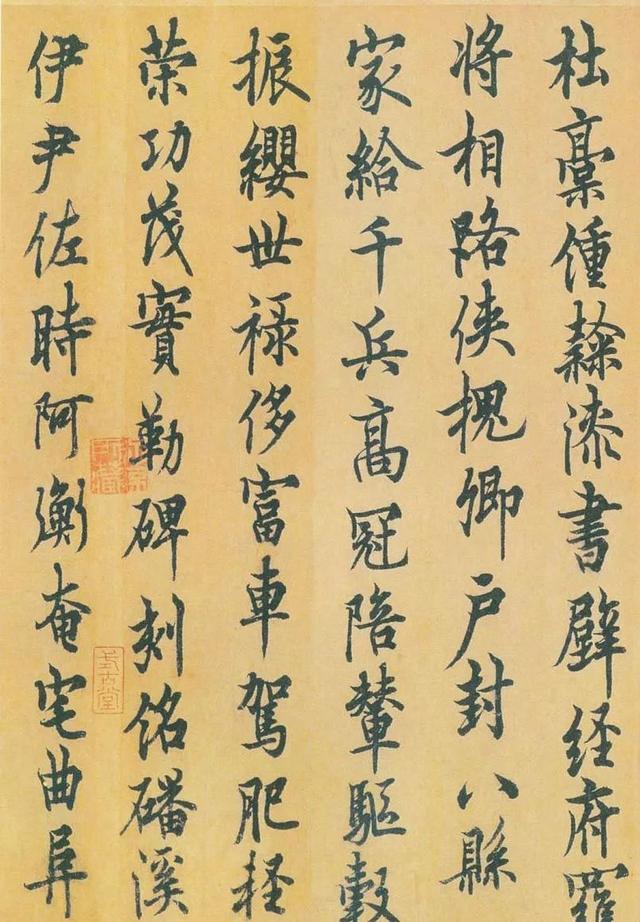 杜稾鍾隸漆書壁経府羅
将相路侠槐卿戸封八縣
家給千兵髙冠陪輦驅轂
振纓世禄侈富車駕肥軽
荣功茂實勒碑刻銘磻溪
伊尹佐時阿衡奄宅曲阜
式古堂